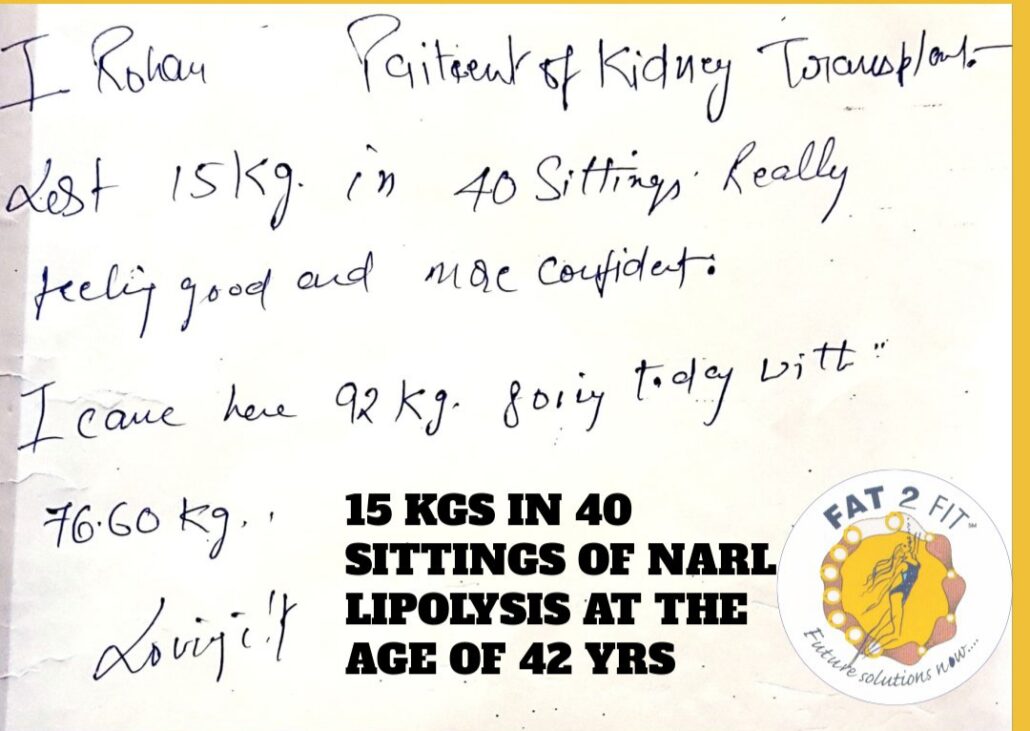 I Rohan Paitient of Kidney Transplant.
Lost 15 Kg. in 40 Sittings. Really
feeling good and more confident.
I came here 92 kg. going today with
76.60 kg..
Loving it
15 KGS IN 40
SITTINGS OF NARL
LIPOLYSIS AT THE
AGE OF 42 YRS
FAT 2 FIT SM
Future solutions now...